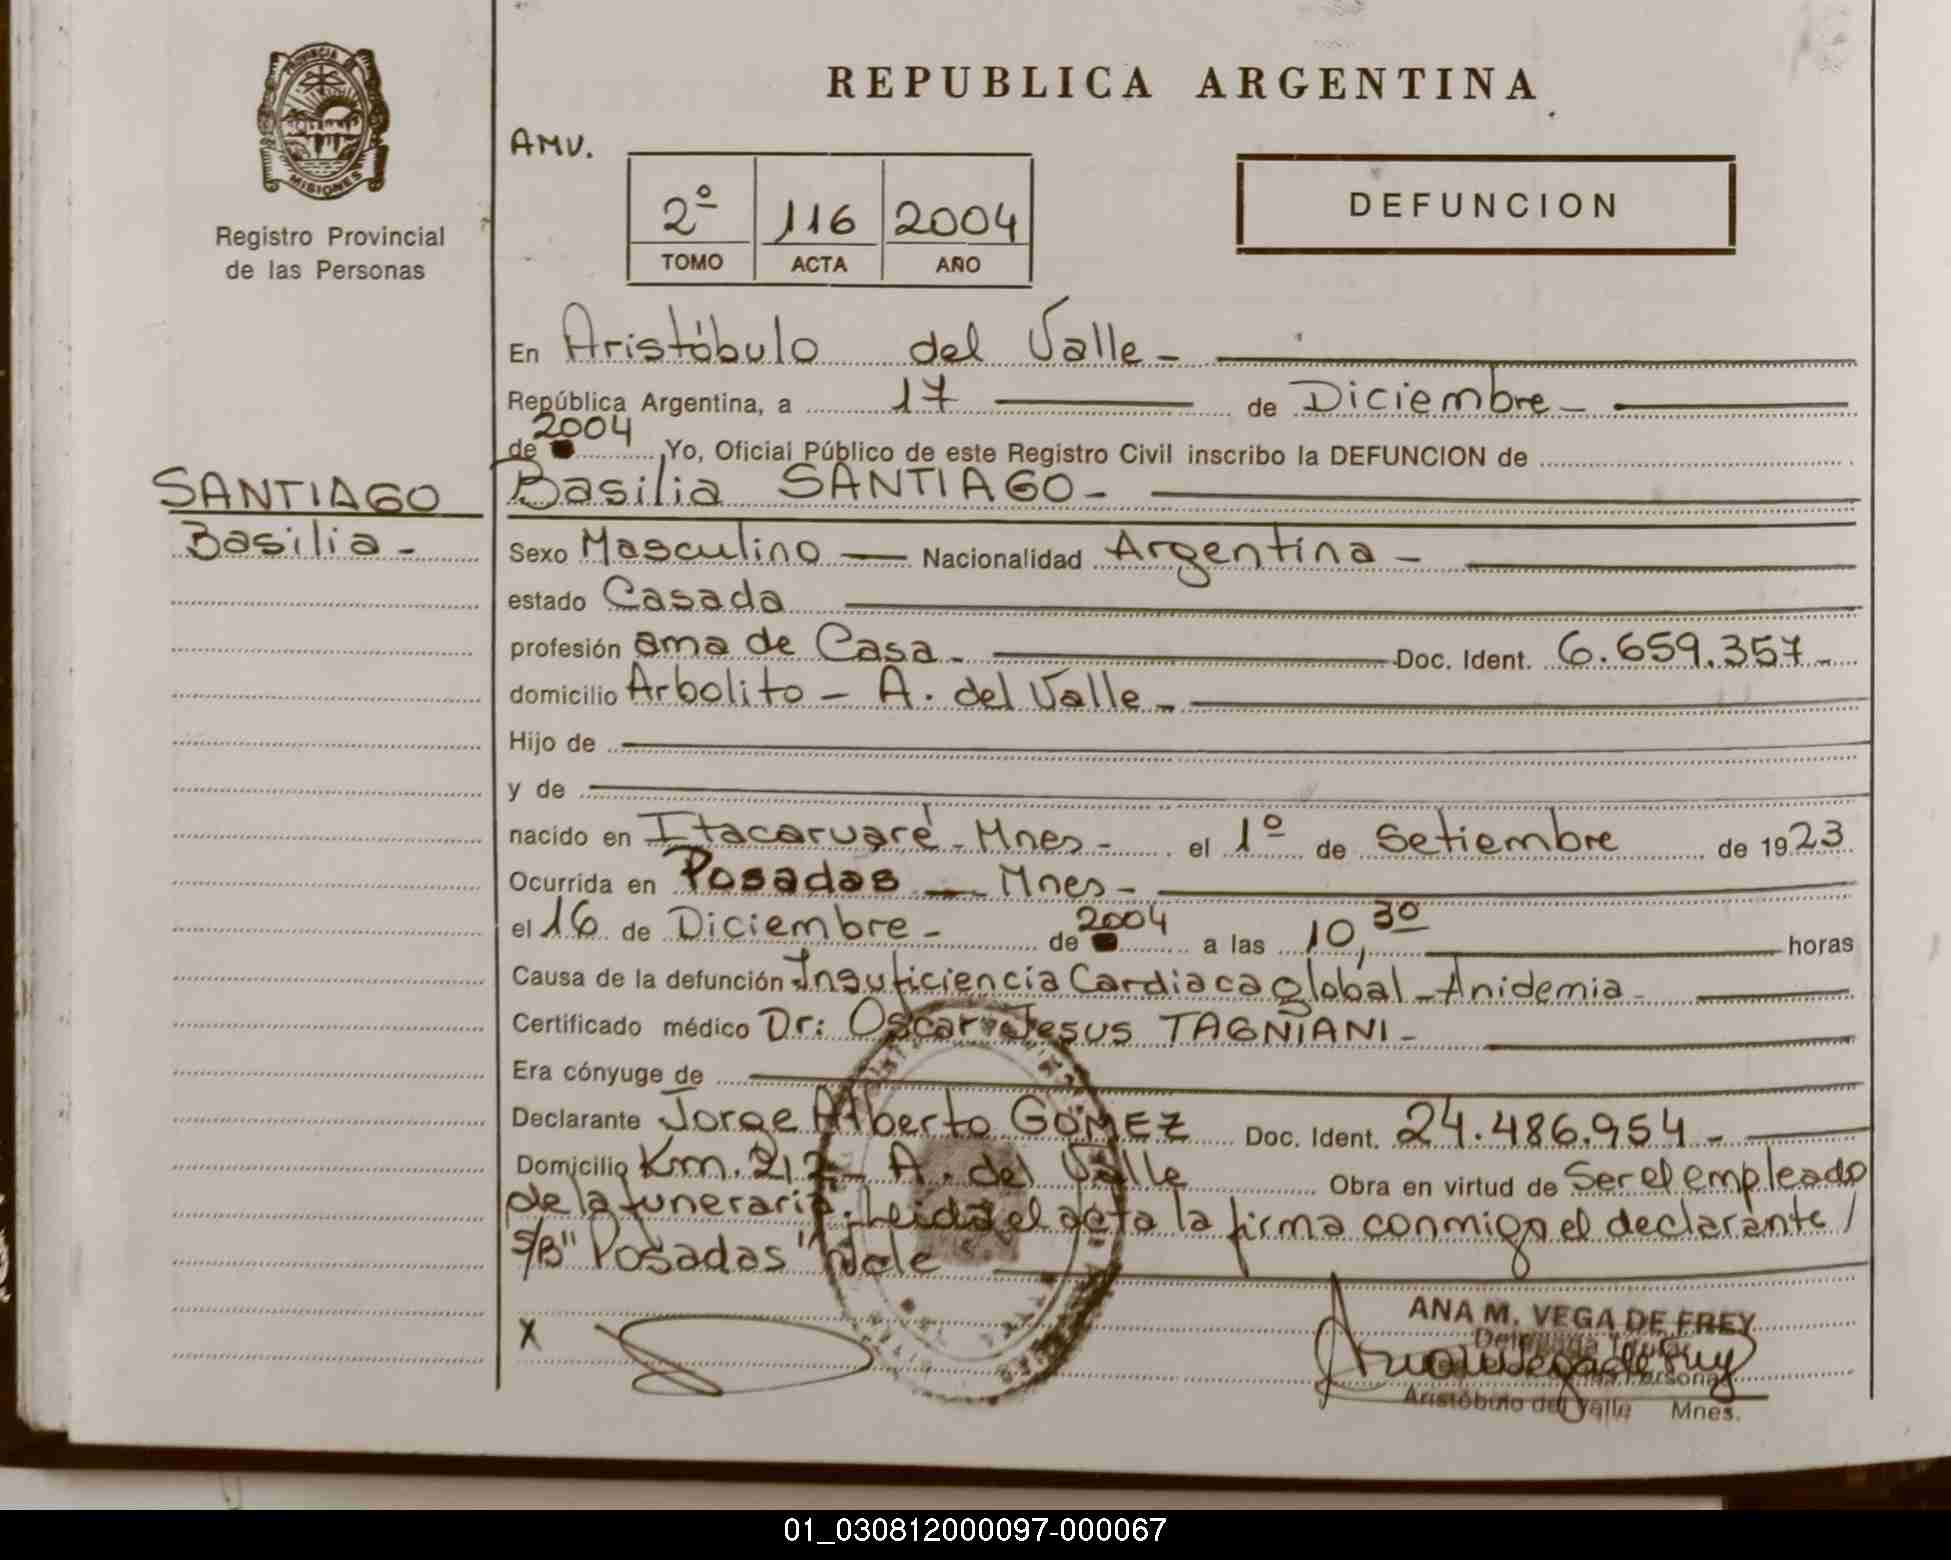 PROVINCIA DE
MISIONES
Registro Provincial
de las Personas
REPUBLICA ARGENTINA
AMV.
2º 116 2004
TOMO ACTA AÑO
DEFUNCION
SANTIAGO
Basilia -
En Aristóbulo del Valle -
República Argentina, a 17 de Diciembre -
de 2004 Yo, Oficial Público de este Registro Civil inscribo la DEFUNCION de
Basilia SANTIAGO -
Sexo Masculino Nacionalidad Argentina -
estado Casada
profesión ama de Casa - Doc. Ident. 6.659.357 -
domicilio Arbolito - A. del Valle -
Hijo de
y de
nacido en Itacaruaré - Mnes - el 1º de Setiembre de 1923
Ocurrida en Posadas - Mnes -
el 16 de Diciembre - de 2004 a las 10,30 horas
Causa de la defunción Insuficiencia Cardiaca global - Anidemia -
Certificado médico Dr: Oscar Jesus TAGNIANI -
Era cónyuge de
Declarante Jorge Alberto GOMEZ Doc. Ident. 24.486.954 -
Domicilio Km. 212 - A. del Valle Obra en virtud de Ser el empleado
de la funeraria. Leida el acta la firma conmigo el declarante /
S/B "Posadas" Vale
X
ANA M. VEGA DE FREY
Delegada Titular
Personas
Aristóbulo del Valle Mnes.
01_030812000097-000067